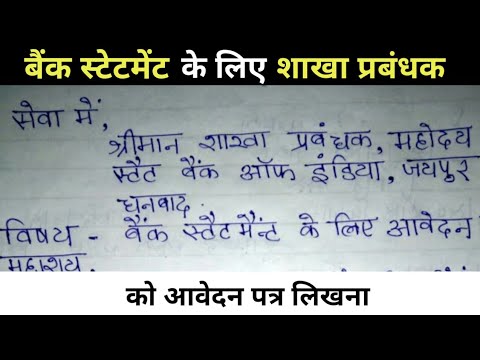 बैंक स्टेटमेंट के लिए शाखा प्रबंधक
सेवा में,
श्रीमान शाखा प्रबंधक, महोदय
स्टैट बैंक ऑफ इंडिया, जयपुर
धनबाद.
विषय - बैंक स्टैटमैंन्ट के लिए आवेदन
महाशय,
को आवेदन पत्र लिखना